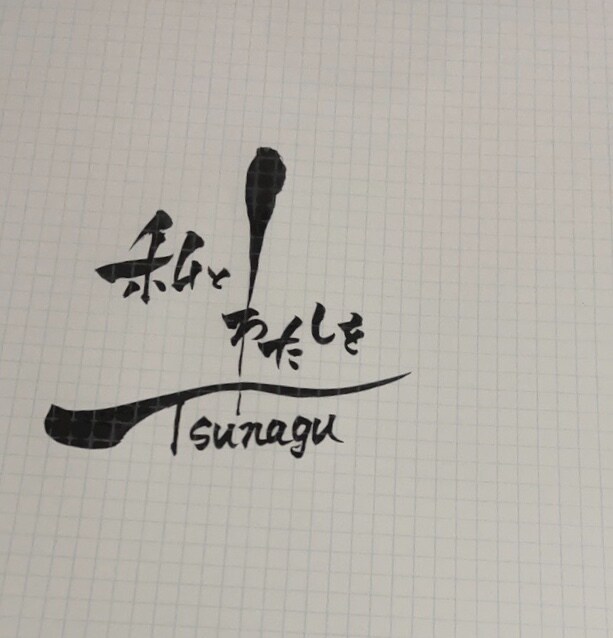 私と
わたしを
Tsunagu